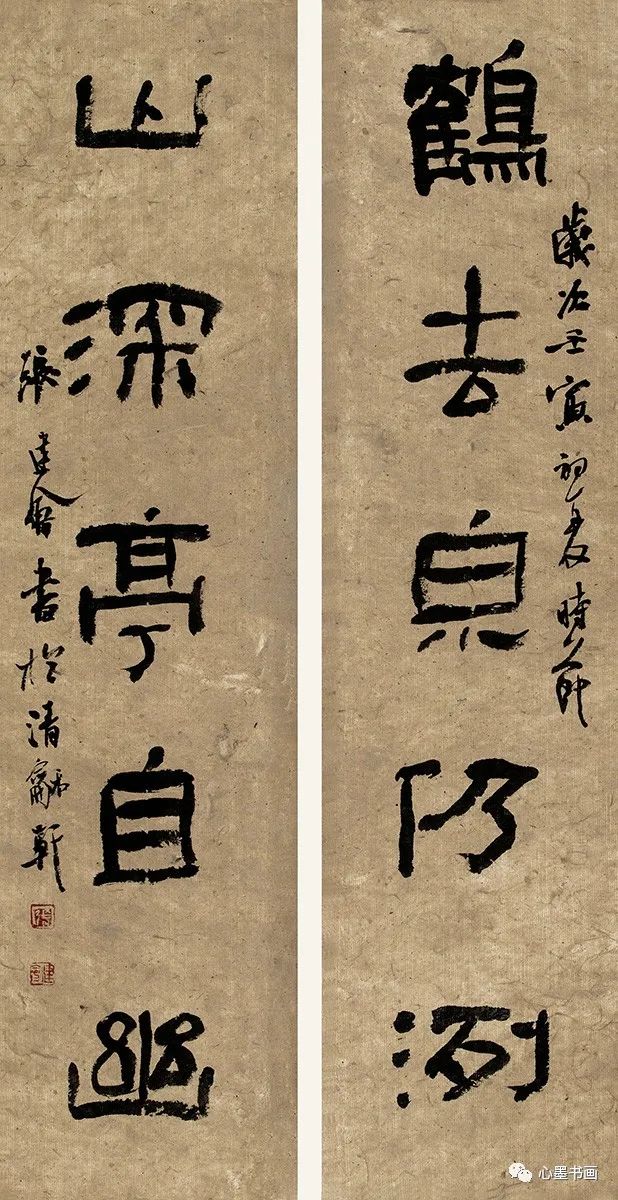 鶴去泉仍洌
歲次壬寅初夏時節
山深亭自幽
張建會書於清龢軒
心墨书画